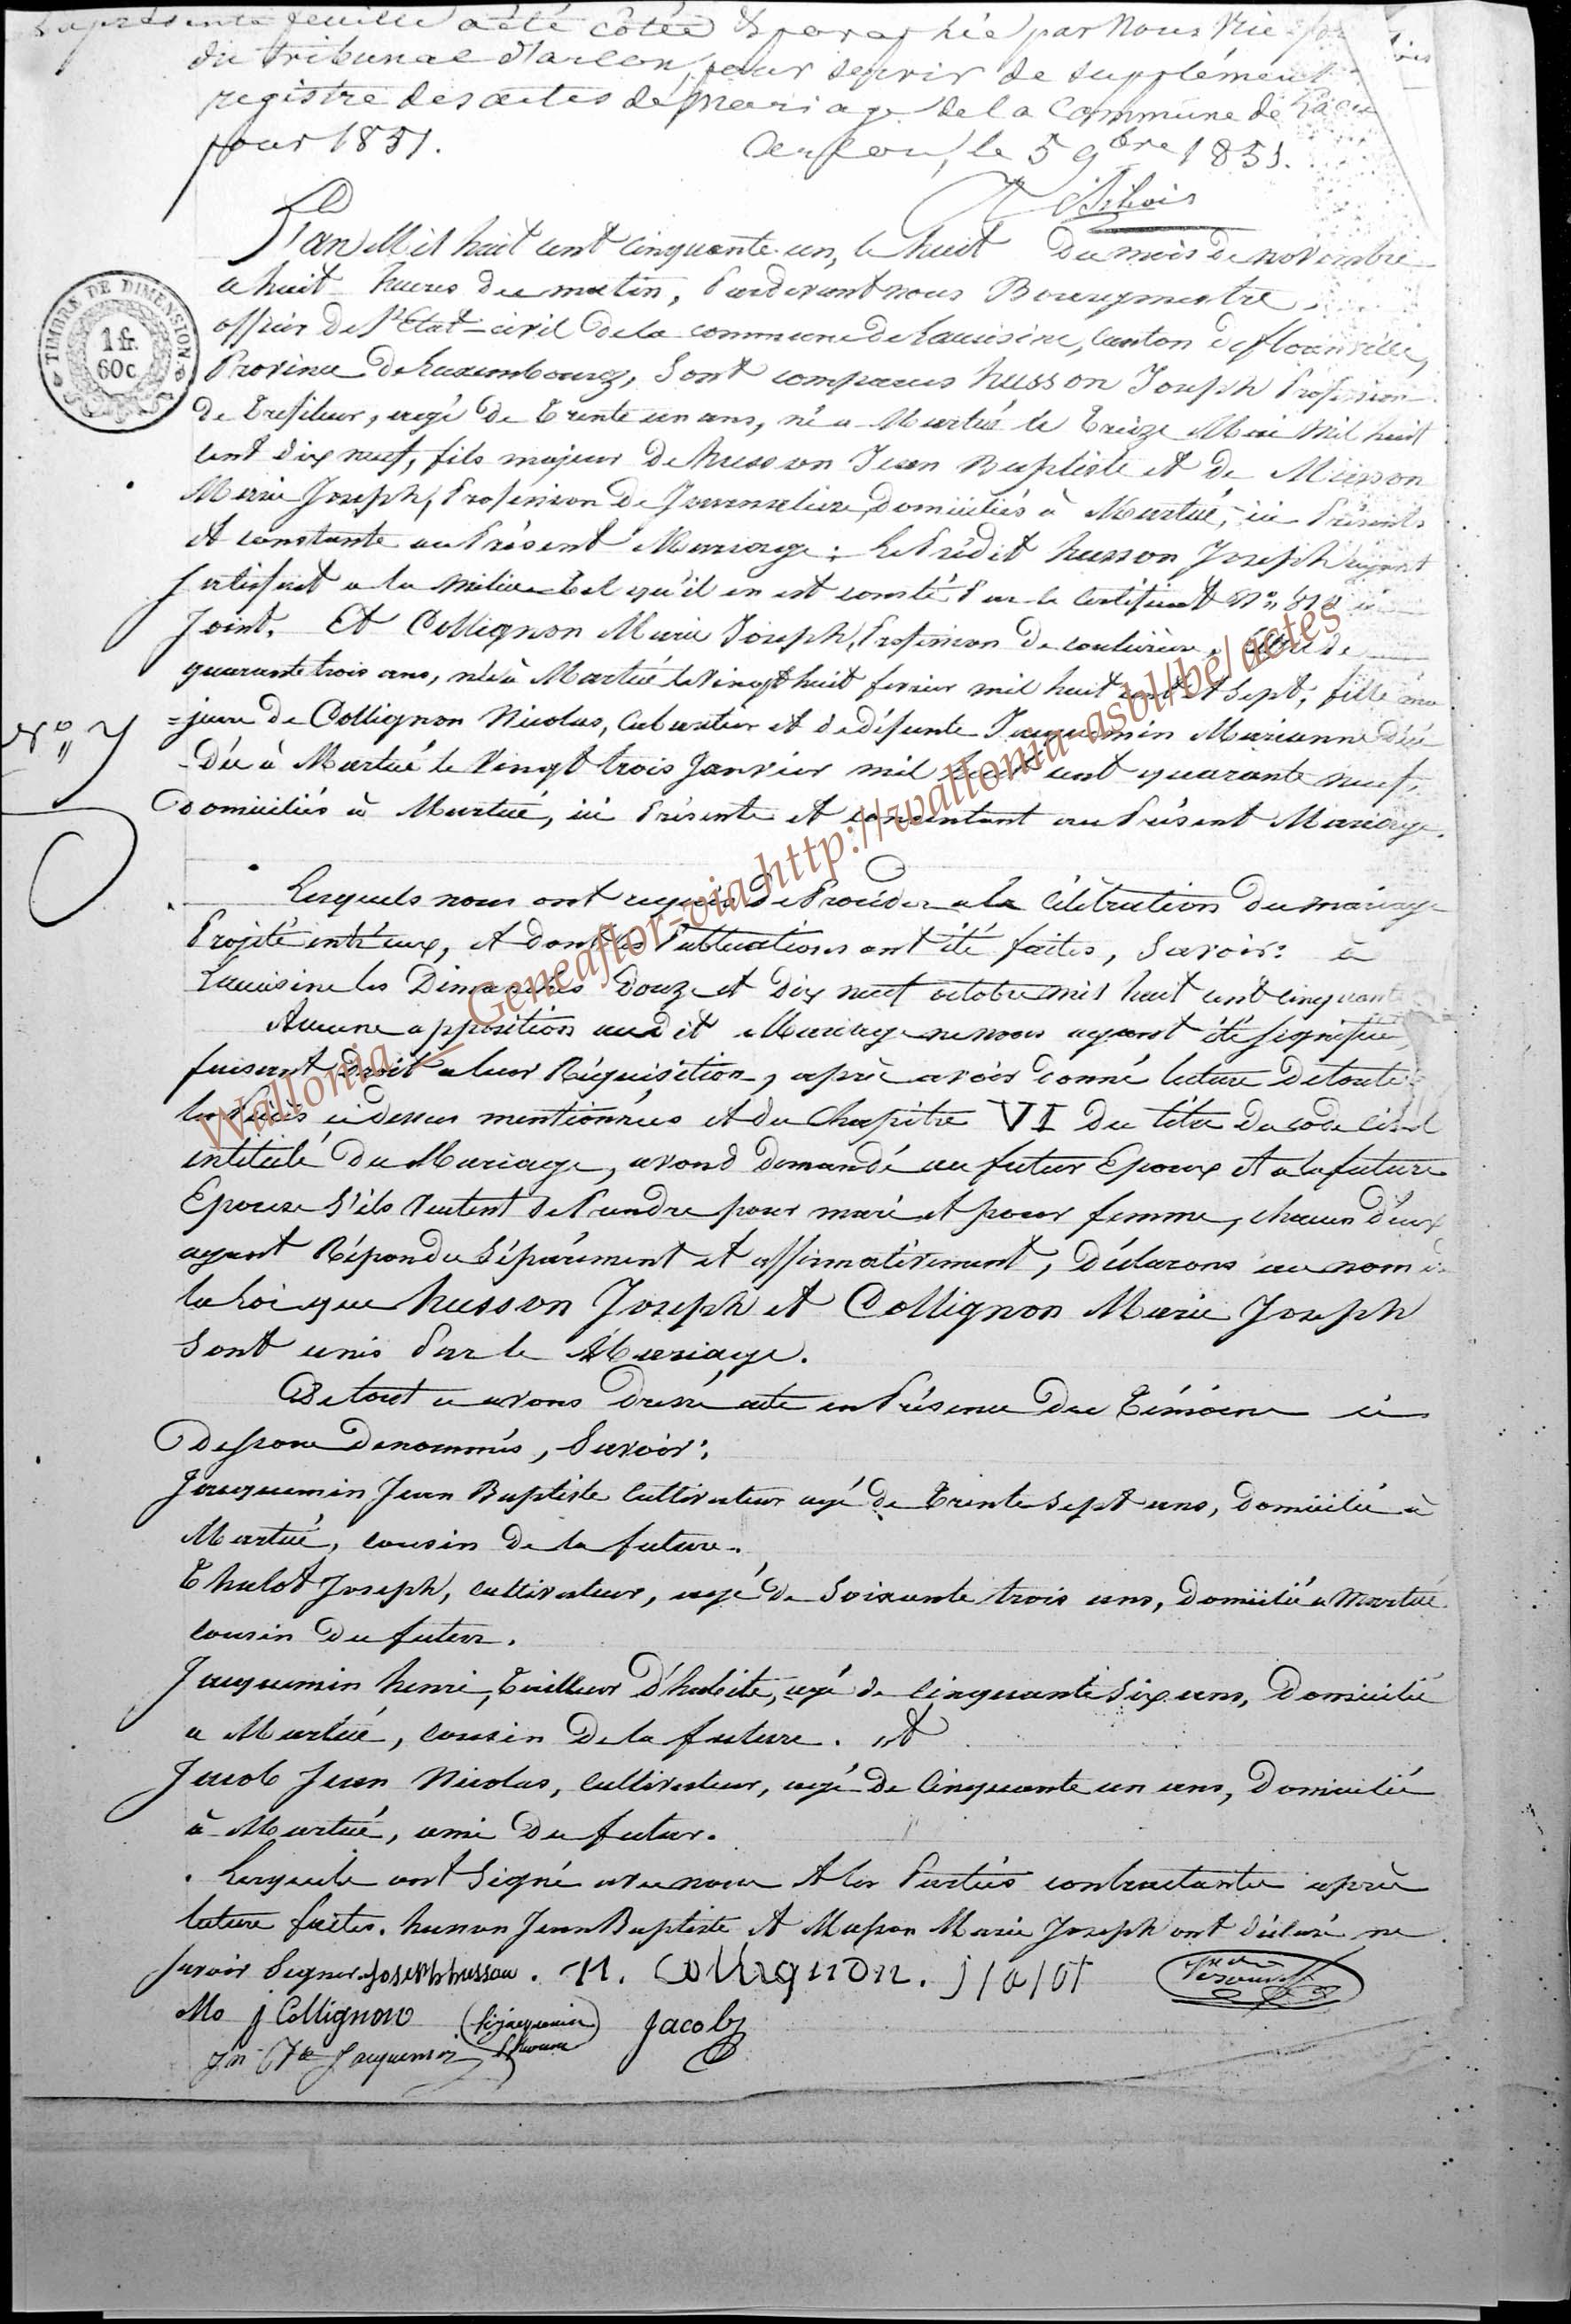 La présente feuille a été côtée & paraphée par Nous Vice
du tribunal d'arlon, pour servir de supplément
registre des actes de mariage de la Commune de Lacui
pour 1851. Arlon, le 5 9bre 1851.
L'an Mil huit cent cinquante-un, le huit du mois de novembre
a huit heures du matin, Pardevant nous Bourgmestre,
officier De l'Etat-civil De la commune de Lacuisine, Canton de florenville,
Province De Luxembourg, Sont comparus husson Joseph Profession
De Trefileur, agé De Trente un ans, né a Martué le Treize Mai Mil huit
cent dix neuf, fils majeur De husson Jean Baptiste et De Masson
Marie Joseph, Profession De Journaliere, Domiciliés à Martué, ici Présents
et constante au Présent Mariage : Le Prédit husson Joseph ayant
satisfait a la milice tel qu'il en est consté Par le Certificat N°
Joint. Et Collignon Marie Joseph, Profession De couturière, agée de
quarante trois ans, née à Martué le Vingt huit fevrier mil huit cent et Sept, fille ma
=jeure De Collignon Nicolas, Cultivateur et de défunte Jacquemin Marianne Décé
-Dée à Martué le Vingt trois Janvier mil huit cent quarante neuf,
Domiciliés à Martué, ici Présente et consentant au Présent Mariage.
N° 7
Lesquels nous ont requis De Procéder a la Célébration Du mariage
Projété entr'eux, et dont les Publications ont été faites, Savoir: à
Lacuisine les Dimanches Douze et Dix neuf octobre mil huit cent cinquante
Aucune opposition audit Mariage ne nous ayant été signifiée,
faisant Droit a leur Réquisition, après avoir donné lecture De toute
les Pièces ci dessus mentionnées et du Chapitre VI Du titre Du code Civil
intitulé Du Mariage, avond Demandé au futur Epoux et a la future
Epouse S'ils Veulent Se Prendre pour mari et pour femme, chacun d'eux
ayant Répondu Séparément et affirmativement, Déclarons au nom de
la Loi que husson Joseph et Collignon Marie Joseph
Sont unis Par le Mariage.
De tout ce avons Dressé acte en Présence Des Témoins ci
Dessous Denommés, Savoir:
Jacquemin Jean Baptiste Cultivateur agé De Trente Sept ans, Domicilié à
Martué, cousin De la future.
Thulot Joseph, Cultivateur, agé De Soixante trois ans, Domicilié a Martué
cousin Du futur.
Jacquemin henri, Tailleur D'habits, agé de Cinquante Six ans, Domicilié
a Martué, cousin De la future. et
Jacob Jean Nicolas, Cultivateur, agé De Cinquante un ans, Domicilié
à Martué, ami Du futur.
Lesquels ont Signé avec nous et les Parties contractantes après
lecture faites. husson Jean Baptiste et Masson Marie Joseph ont Déclaré ne
savoir Signer. Joseph husson. N. Collignon.
M j Collignon Jacob
Jn Bte Jacquemin
TIMBRE DE DIMENSION
1 fr.
60c
Wallonia _ Geneaflor-via http://wallonia-asbl/be/actes